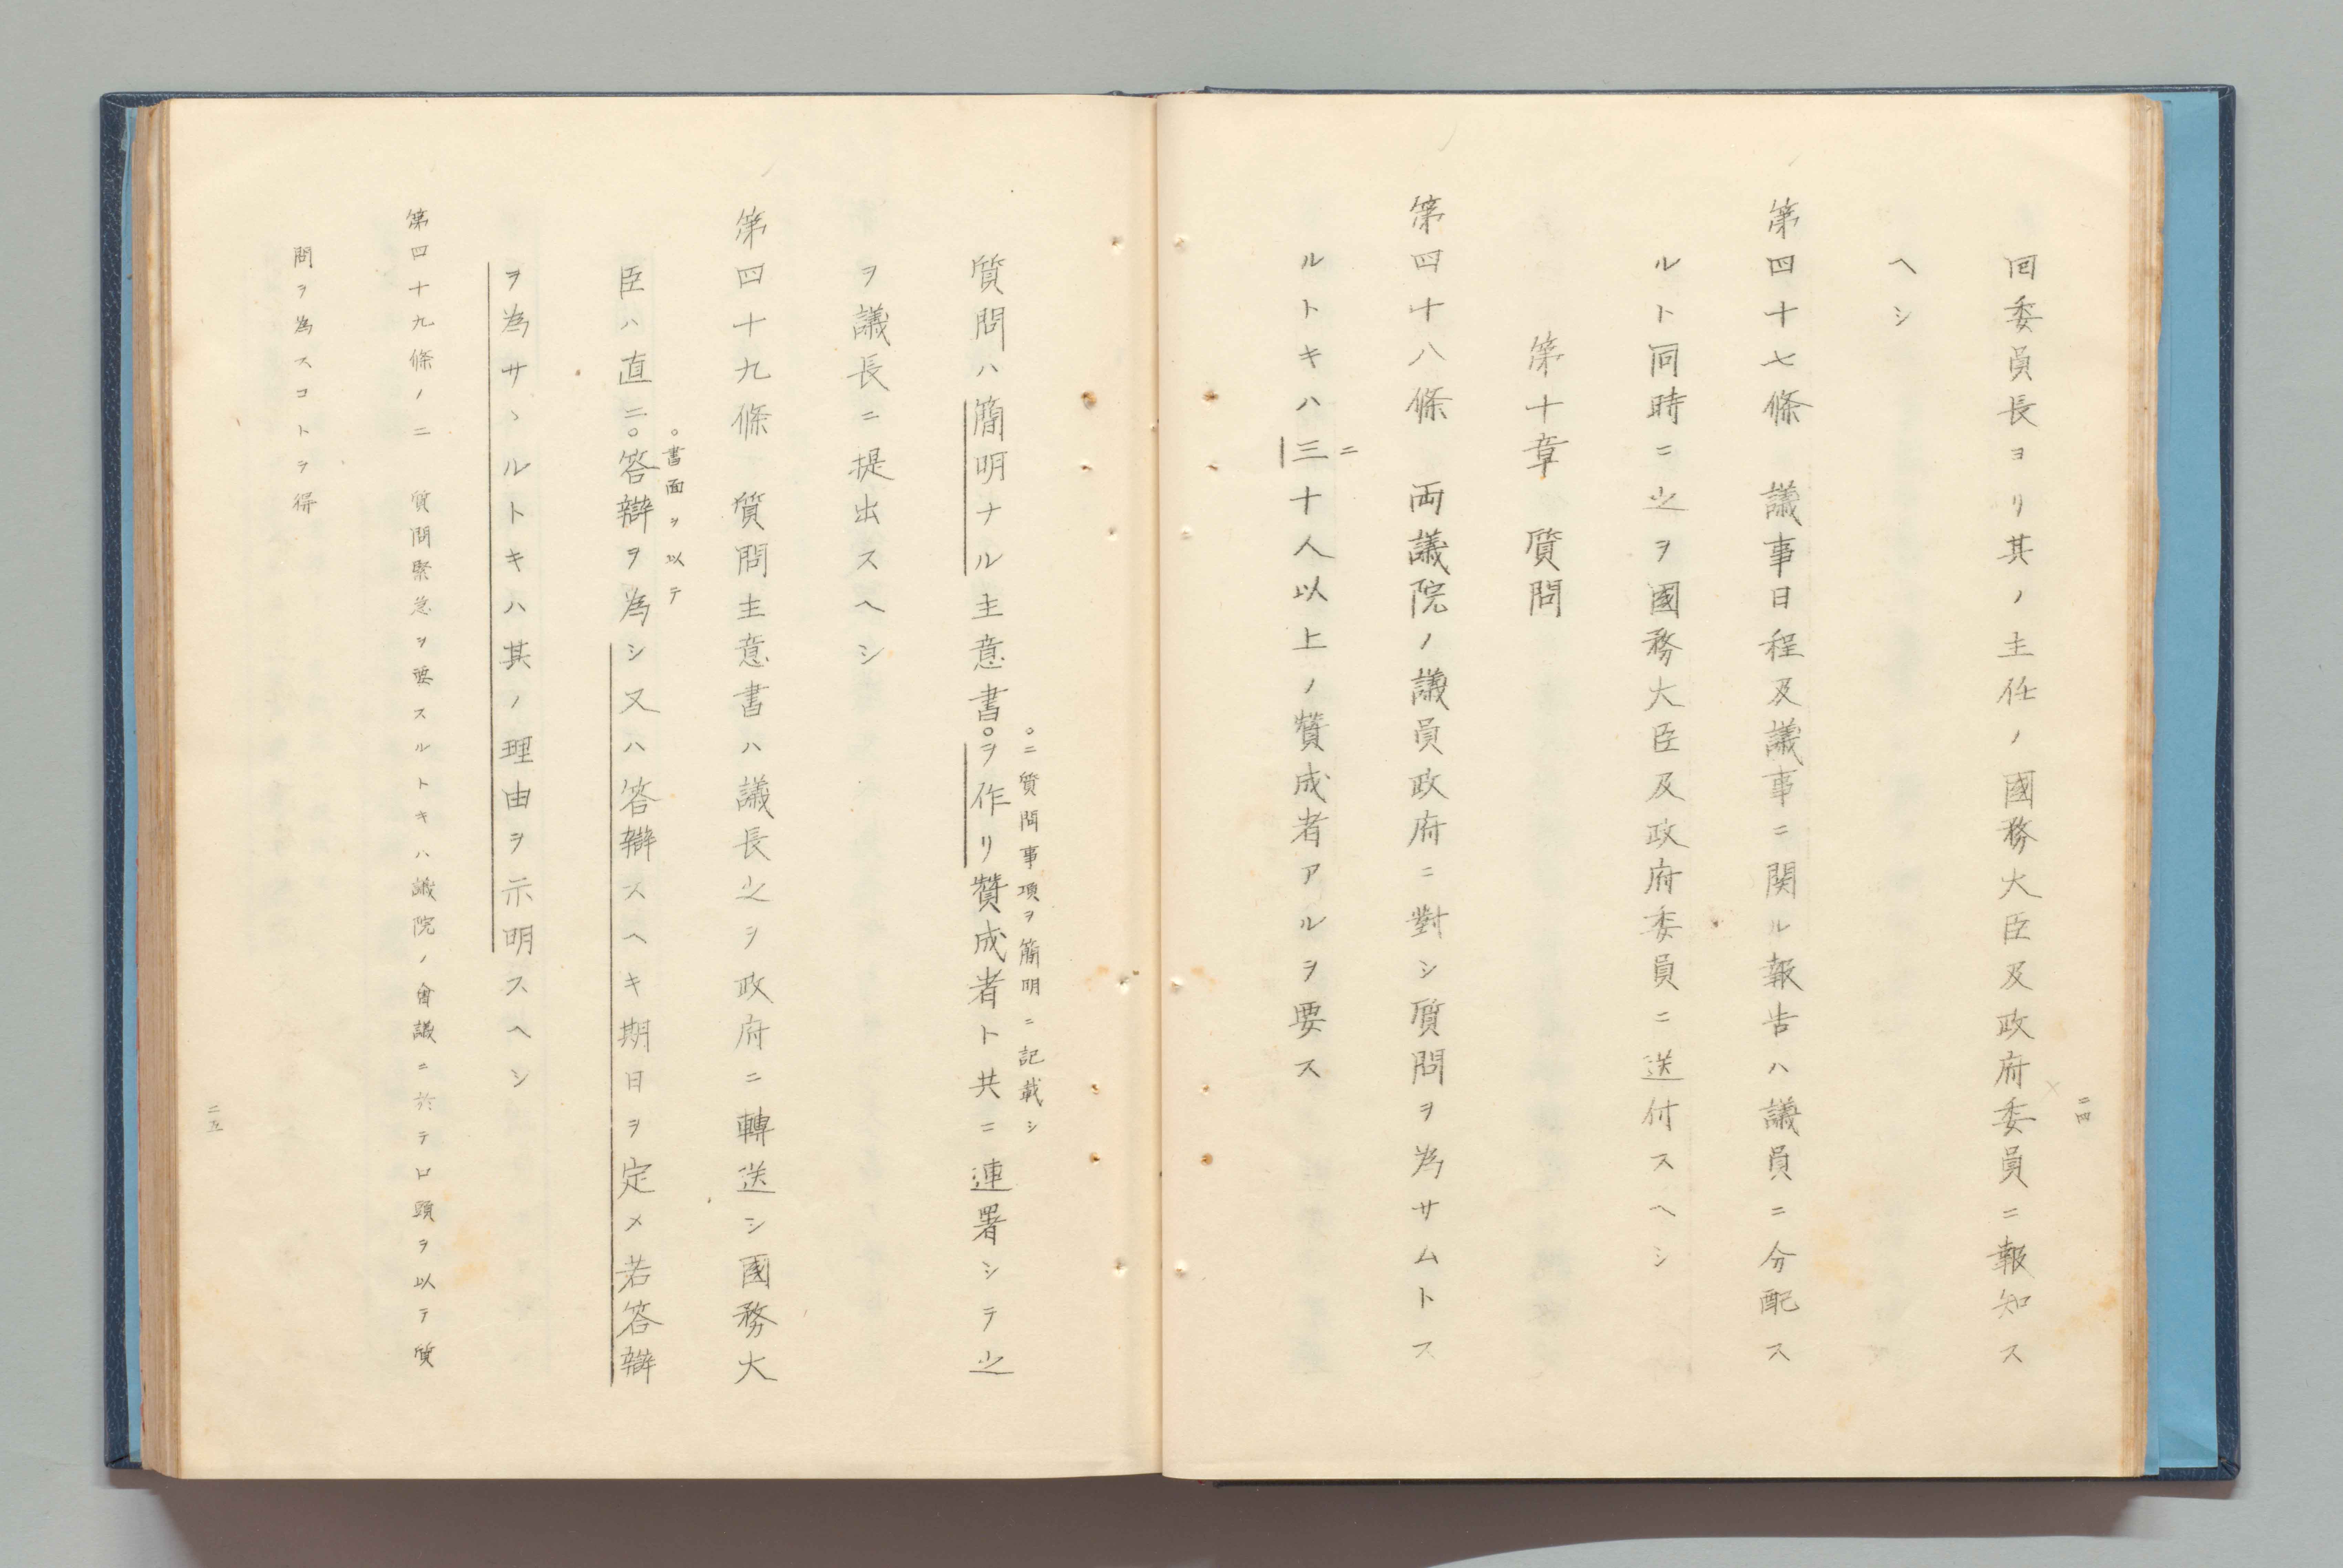 二四
回委員長ヨリ其ノ主任ノ國務大臣及政府委員ニ報知ス
ヘシ
第四十七條　議事日程及議事ニ関ル報告ハ議員ニ分配ス
ルト同時ニ之ヲ國務大臣及政府委員ニ送付スヘシ
第十章　質問
第四十八條　両議院ノ議員政府ニ對シ質問ヲ為サムトス
二
ルトキハ三十人以上ノ賛成者アルヲ要ス
○ニ質問事項ヲ簡明ニ記載シ
質問ハ簡明ナル主意書○ヲ作リ賛成者ト共ニ連署シテ之
ヲ議長ニ提出スヘシ
第四十九條　質問主意書ハ議長之ヲ政府ニ轉送シ國務大
○書面ヲ以テ
臣ハ直ニ○答辯ヲ為シ又ハ答辯スヘキ期日ヲ定メ若答辯
ヲ為サヽルトキハ其ノ理由ヲ示明スヘシ
第四十九條ノ二　質問緊急ヲ要スルトキハ議院ノ會議ニ於テ口頭ヲ以テ質
問ヲ為スコトヲ得
二五